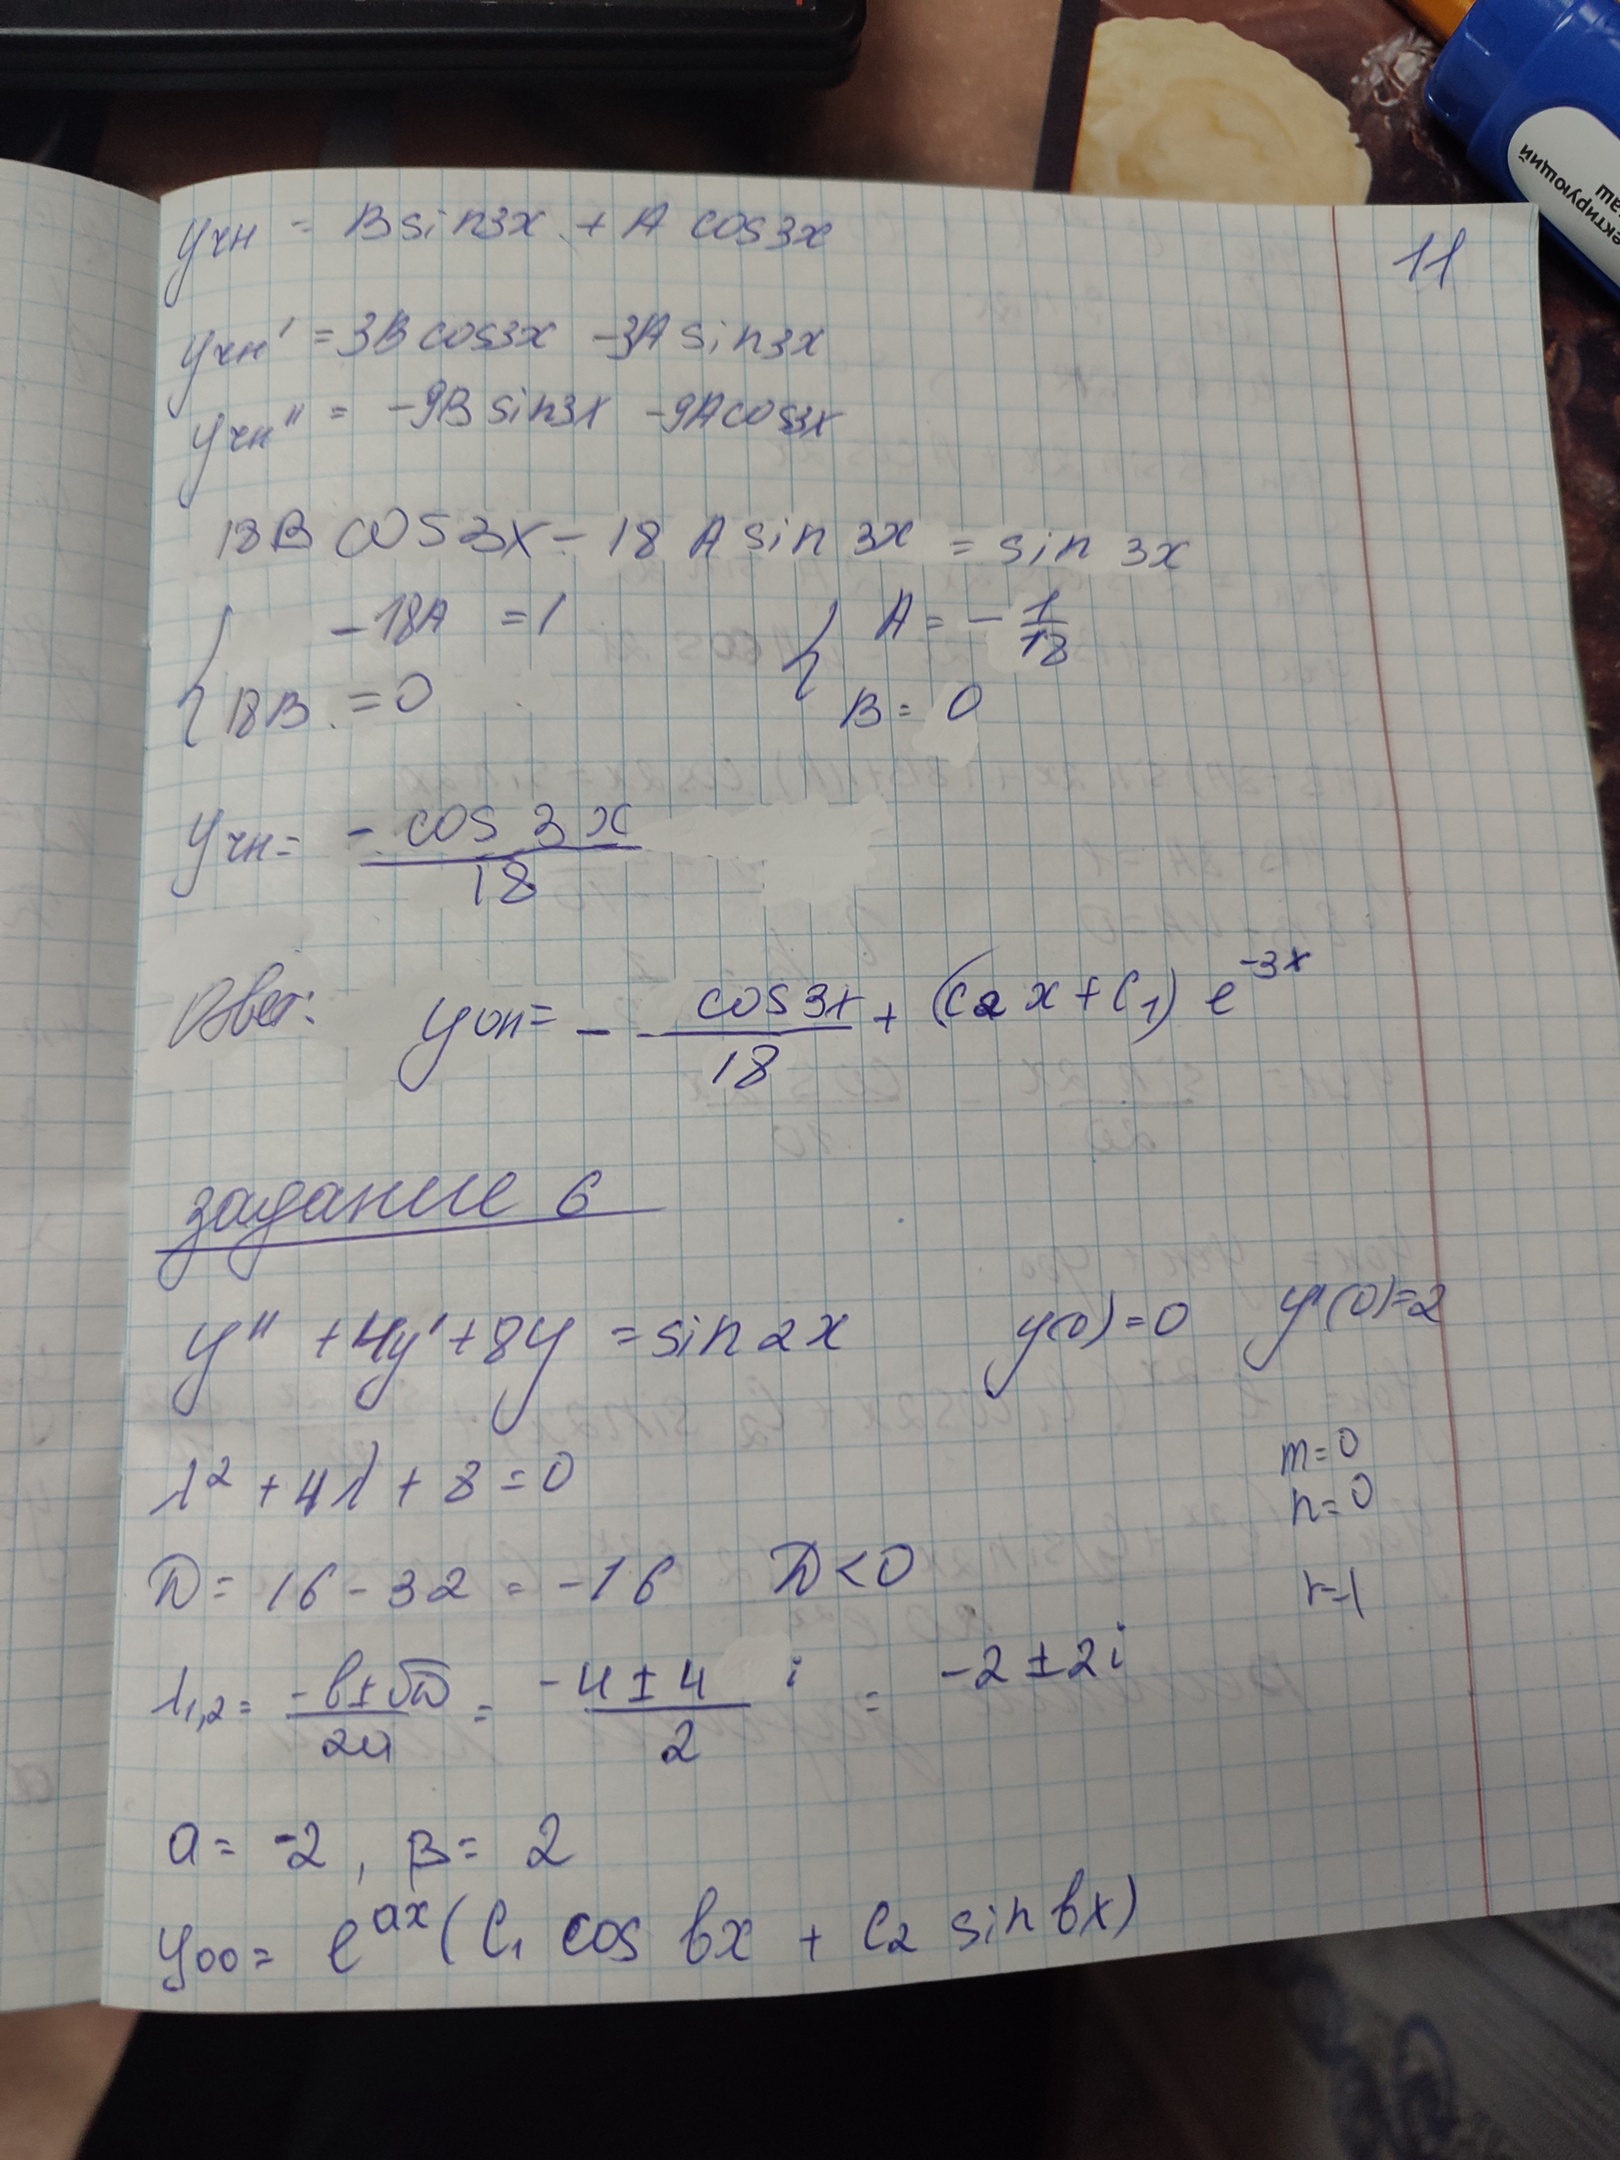 11
yчн = Bsin3x + A cos3x
yчн' = 3B cos3x - 3A sin3x
yчн'' = -9B sin3x - 9A cos3x
18B cos3x - 18 A sin 3x = sin 3x
{ -18A = 1 { A = - 1/18
18B = 0 B = 0
yчн = - cos 3x / 18
Ответ: yон = - cos3x / 18 + (C2 x + C1) e^-3x
задание 6
y'' + 4y' + 8y = sin 2x y(0) = 0 y'(0) = 2
λ² + 4λ + 8 = 0
m = 0
n = 0
D = 16 - 32 = -16 D < 0
r=1
λ1,2 = -b ± √D / 2a = -4 ± 4 i / 2 = -2 ± 2i
a = -2, B = 2
yоо = e^ax (C1 cos bx + C2 sin bx)